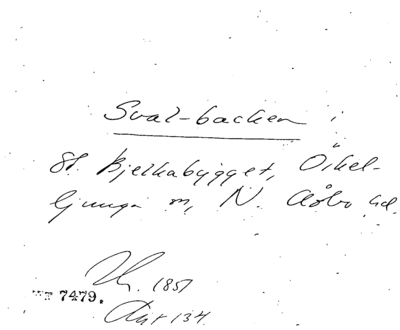 Sval-backen
St. Bjelkabygget, Örkel-
ljunga sn, N. Åsbo hd.
1857
7479.
Akt 134